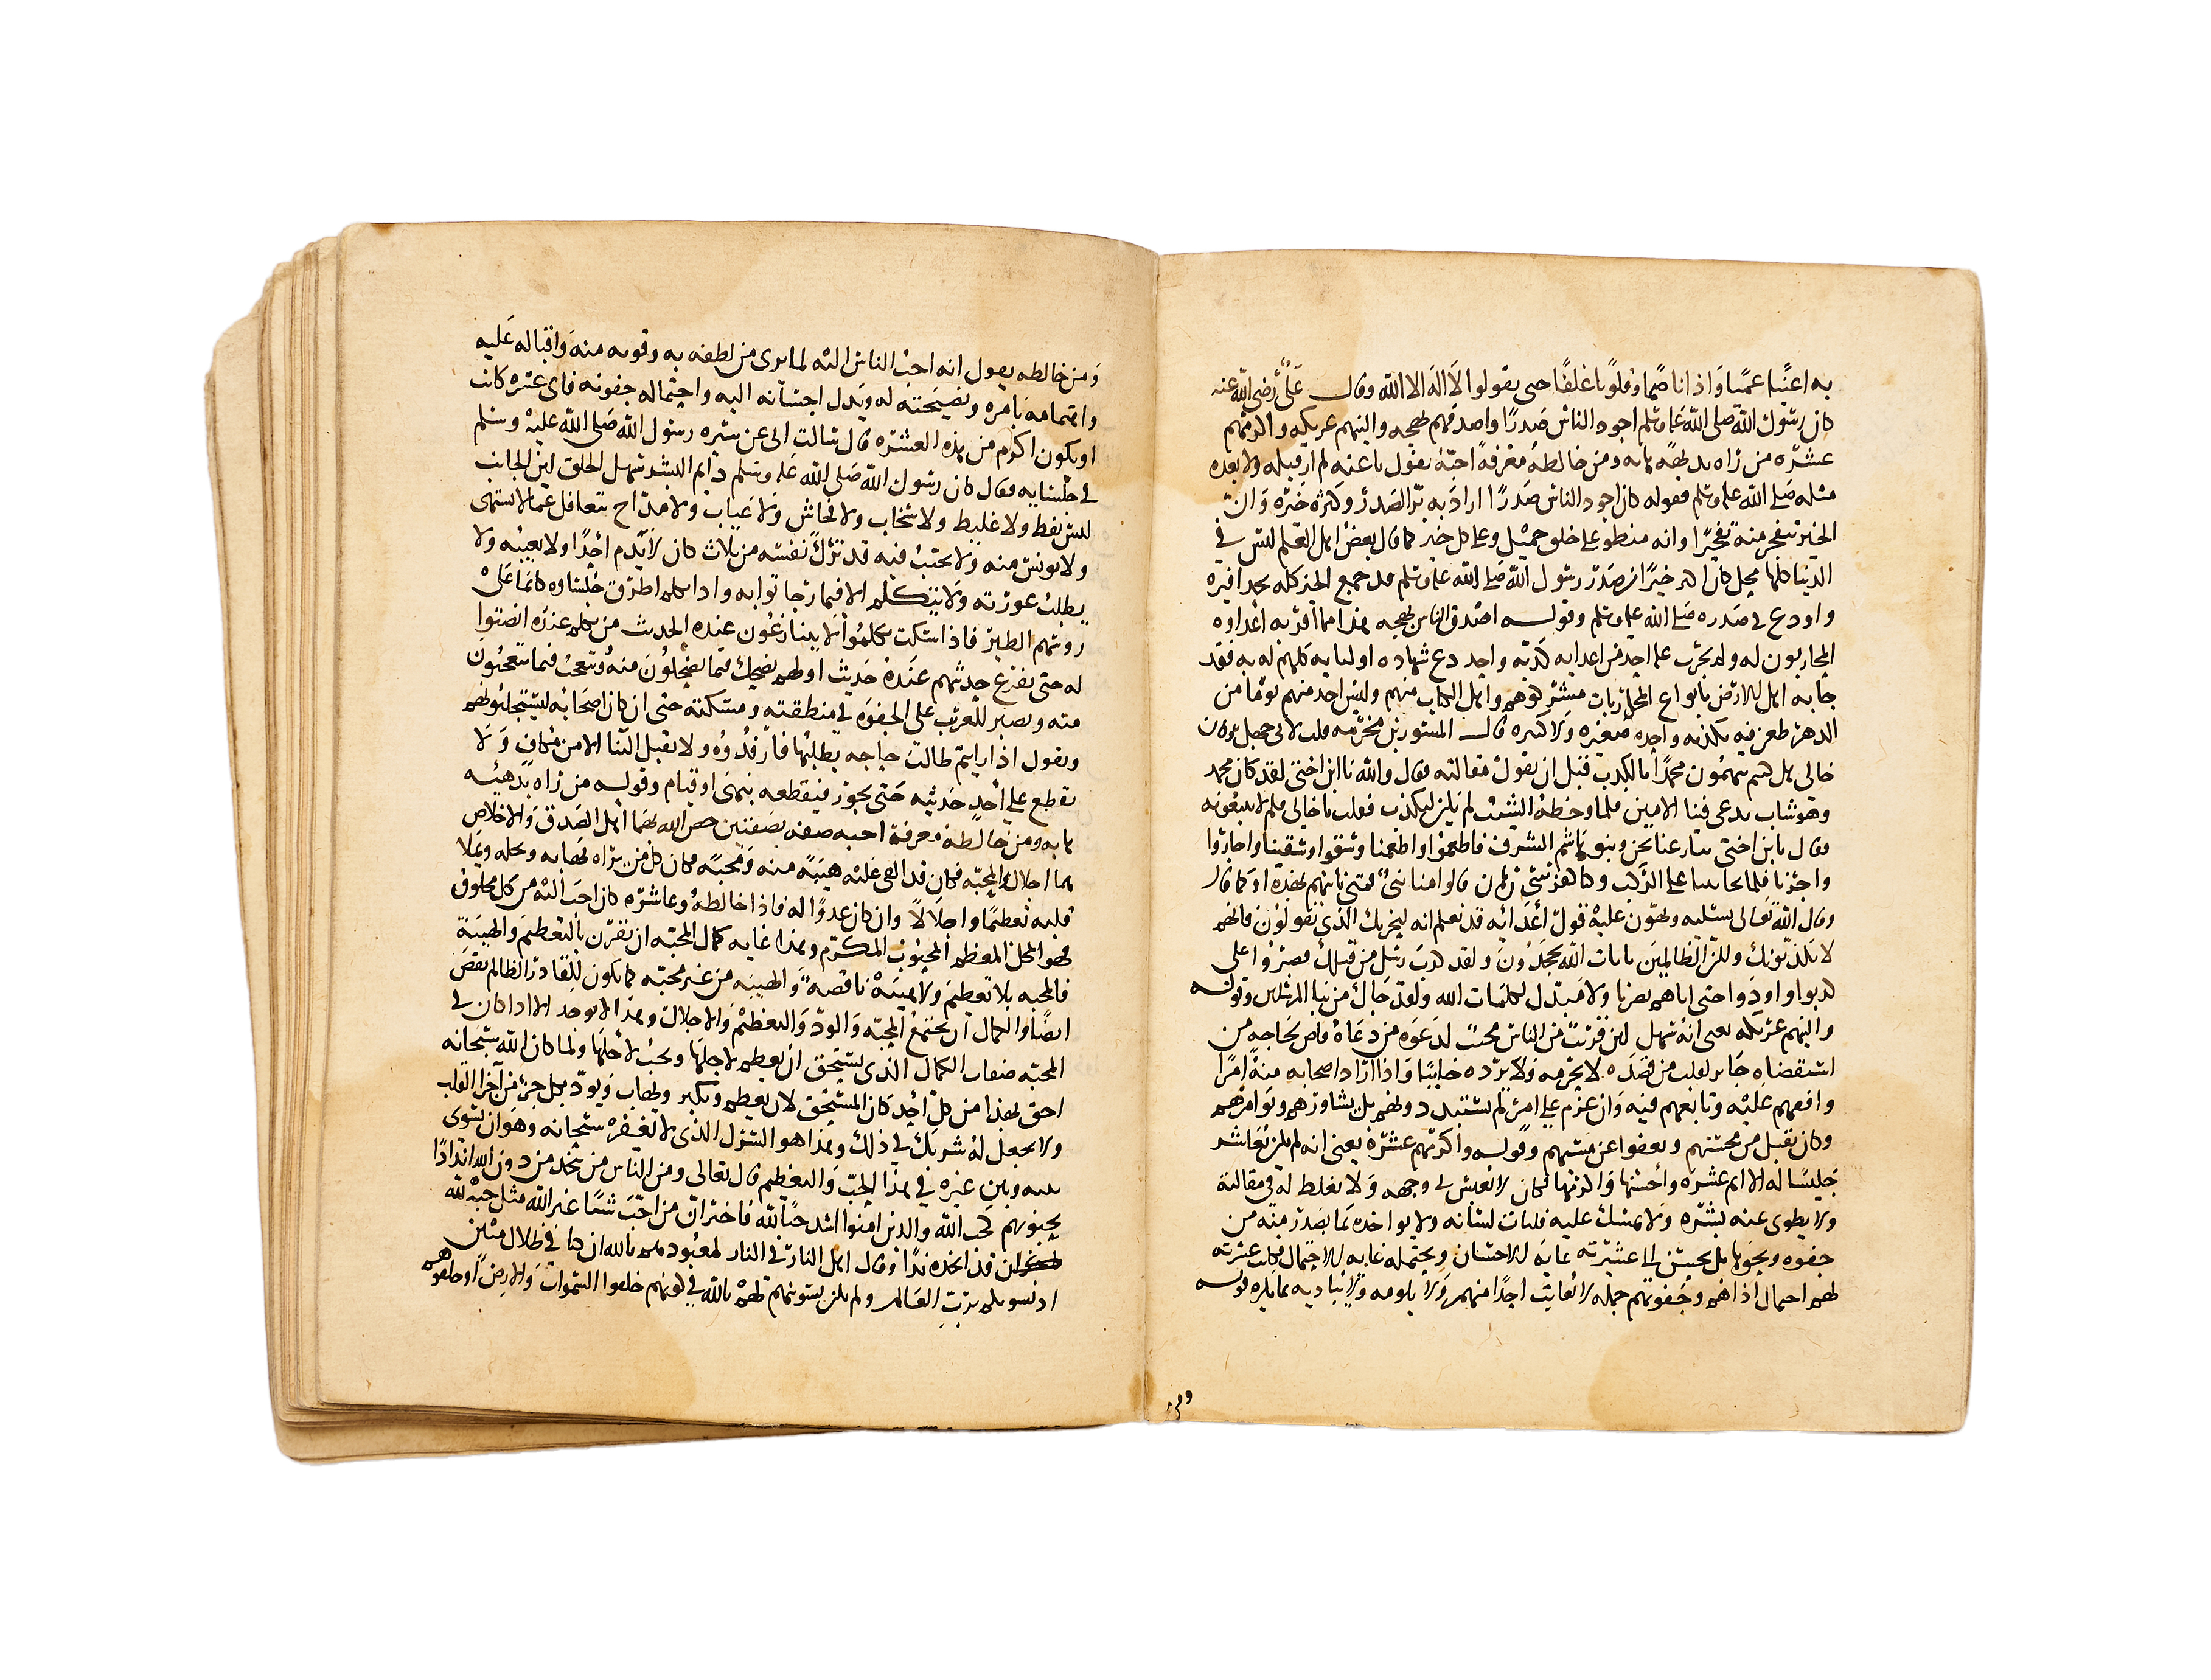 به اعينا عميا واذانا صما وقلوبا غلفا حتى يقولوا لا اله الا الله وقال علي رضي الله عنه
كان رسول الله صلى الله عليه وسلم اجود الناس صدرا واصدقهم لهجه والينهم عريكه واكرمهم
عشره من راه بديهه هابه ومن خالطه معرفة احبه يقول ناعته لم ار قبله ولا بعده
مثله صلى الله عليه وسلم فقوله كان اجود الناس صدرا اراد به بر الصدر وكثره خيره وان
الخير يتفجر منه تفجيرا وانه منطو على خلق جميل وعلى كل خير كما قال بعض اهل العلم ليس في
الدنيا كلها محل كان اكثر خيرا من صدر رسول الله صلى الله عليه وسلم قد جمع الخير كله بحذافيره
واودع في صدره صلى الله عليه وسلم وقوله اصدق الناس لهجه هذا مما اقر به اعداوه
المحاربون له ولم يجرب عليه احد من اعدايه كذبه واحده دع شهاده اوليايه كلهم له به فقد
حاربه اهل الارض بانواع المحاربات مشركوهم واهل الكتاب منهم وليس احد منهم يوما من
الدهر طعن فيه بكذبه واحده صغيره ولا كبيره قال المسور بن مخرمه قلت لابي جهل وكان
خالي هل كنتم تتهمون محمدا بالكذب قبل ان يقول مقالته فقال والله يا ابن اختي لقد كان محمد
وهو شاب يدعى فينا الامين فلما وخطه الشيب لم يكن ليكذب قلت يا خالي فلم لا تتبعونه
فقال يا بن اختي تنازعنا نحن وبنو هاشم الشرف فاطعموا واطعمنا وسقوا وسقينا واجاروا
واجرنا فلما تجاثينا على الركب وكنا كفرسي رهان قالوا منا نبي فمتى ناتيهم بهذه او كما قال
وقال الله تعالى يسليه ويهون عليه قول اعدائه قد نعلم انه ليحزنك الذي يقولون فانهم
لا يكذبونك ولكن الظالمين بايات الله يجحدون ولقد كذبت رسل من قبلك فصبروا على
ما كذبوا واوذوا حتى اتاهم نصرنا ولا مبدل لكلمات الله ولقد جاك من نبا المرسلين وقوله
والينهم عريكه يعني انه سهل لين قريب من الناس مجيب لدعوه من دعاه قاض لحاجه من
استقضاه جابر لقلب من قصده لا يحرمه ولا يرده خايبا واذا اراد اصحابه منه امرا
وافقهم عليه وتابعهم فيه وان عزم على امر لم يستبد دونهم بل يشاورهم ويوامرهم
وكان يقبل من محسنهم ويعفو عن مسيهم وقوله واكرمهم عشرة يعني انه لم يكن يعاشر
جليسا له الا اتم عشره واحسنها واكرمها فكان لا يعبس في وجهه ولا يغلظ له في مقالته
ولا يطوي عنه بشره ولا يمسك عليه فلتات لسانه ولا يواخذه بما يصدر منه من
جفوه ونحوها بل يحسن الى عشيرته غايه الاحسان ويحتمله غايه الاحتمال فكانت عشرته
لهم احتمال اذاهم وجفوتهم جمله لا يعاتب احدا منهم ولا يلومه ولا يباديه بما يكره
ومن
ومن خالطه يقول انه احب الناس اليه لما يرى من لطفه به وقربه منه واقباله عليه
واهتمامه بامره ونصيحته له وبذل احسانه اليه واحتماله جفوته فاي عشره كانت
او يكون اكرم من هذه العشره قال سالت ابي عن سيره رسول الله صلى الله عليه وسلم
في جلسايه فقال كان رسول الله صلى الله عليه وسلم دايم البشر سهل الخلق لين الجانب
ليس بفظ ولا غليظ ولا سخاب ولا فحاش ولا عياب ولا مداح يتغافل عما لا يشتهي
ولا يونس منه ولا يخيب فيه قد ترك نفسه من ثلاث كان لا يذم احدا ولا يعيبه ولا
يطلب عورته ولا يتكلم الا فيما رجا ثوابه واذا تكلم اطرق جلساوه كانما على
روسهم الطير فاذا سكت تكلموا لا يتنازعون عنده الحديث من تكلم عنده انصتوا
له حتى يفرغ حديثهم عنده حديث اولهم يضحك مما يضحكون منه ويتعجب مما يتعجبون
منه ويصبر للغريب على الجفوه في منطقته ومسكنته حتى ان كان اصحابه ليستجلبونهم
ويقول اذا رايتم طالب حاجه يطلبها فارفدوه ولا يقبل الثنا الا من مكاف ولا
يقطع على احد حديثه حتى يجوز فيقطعه بنهي او قيام وقوله من راه بديهه
هابه ومن خالطه معرفة احبه صفه بصفتين خص الله بهما اهل الصدق والاخلاص
هما الاجلال والمحبه فكان قد القي عليه هيبة منه ومحبة فكان كل من يراه يهابه ويجله ويملا
قلبه تعظيما واجلالا وان كان عدوا له فاذا خالطه وعاشره كان احب اليه من كل مخلوق
فهو المجل المعظم المحبوب المكرم وهذا غايه كمال المحبه ان تقرن بالتعظيم والهيبة
فالمحبه بلا تعظيم ولا هيبة ناقصه والهيبه من غير محبه كما يكون للقادر الظالم نقص
ايضا والكمال ان تجتمع المحبه والود والتعظيم والاجلال وهذا لا يوجد الا اذا كان في
المحبه صفات الكمال الذي يستحق ان يعظم لاجلها ويحب لاجلها ولما كان الله سبحانه
احق بهذا من كل احد كان المستحق لان يعظم ويكبر ويهاب ويود بكل جز من اجزا القلب
ولا يجعل له شريك في ذلك وهذا هو الشرك الذي لا يغفره سبحانه وهو ان يسوى
بينه وبين غيره في هذا الحب والتعظيم قال تعالى ومن الناس من يتخذ من دون الله اندادا
يحبونهم كحب الله والذين امنوا اشد حبا لله فاخبر ان من احب شيا غير الله مثل حبه لله
كان قد اتخذه ندا وقال اهل النار في النار لمعبوديهم تالله ان كنا لفي ظلال مبين
اذ نسويكم برب العالمين ولم يكن يسوونهم به بالله في كونهم خلقوا السموات والارض او خلقوهم